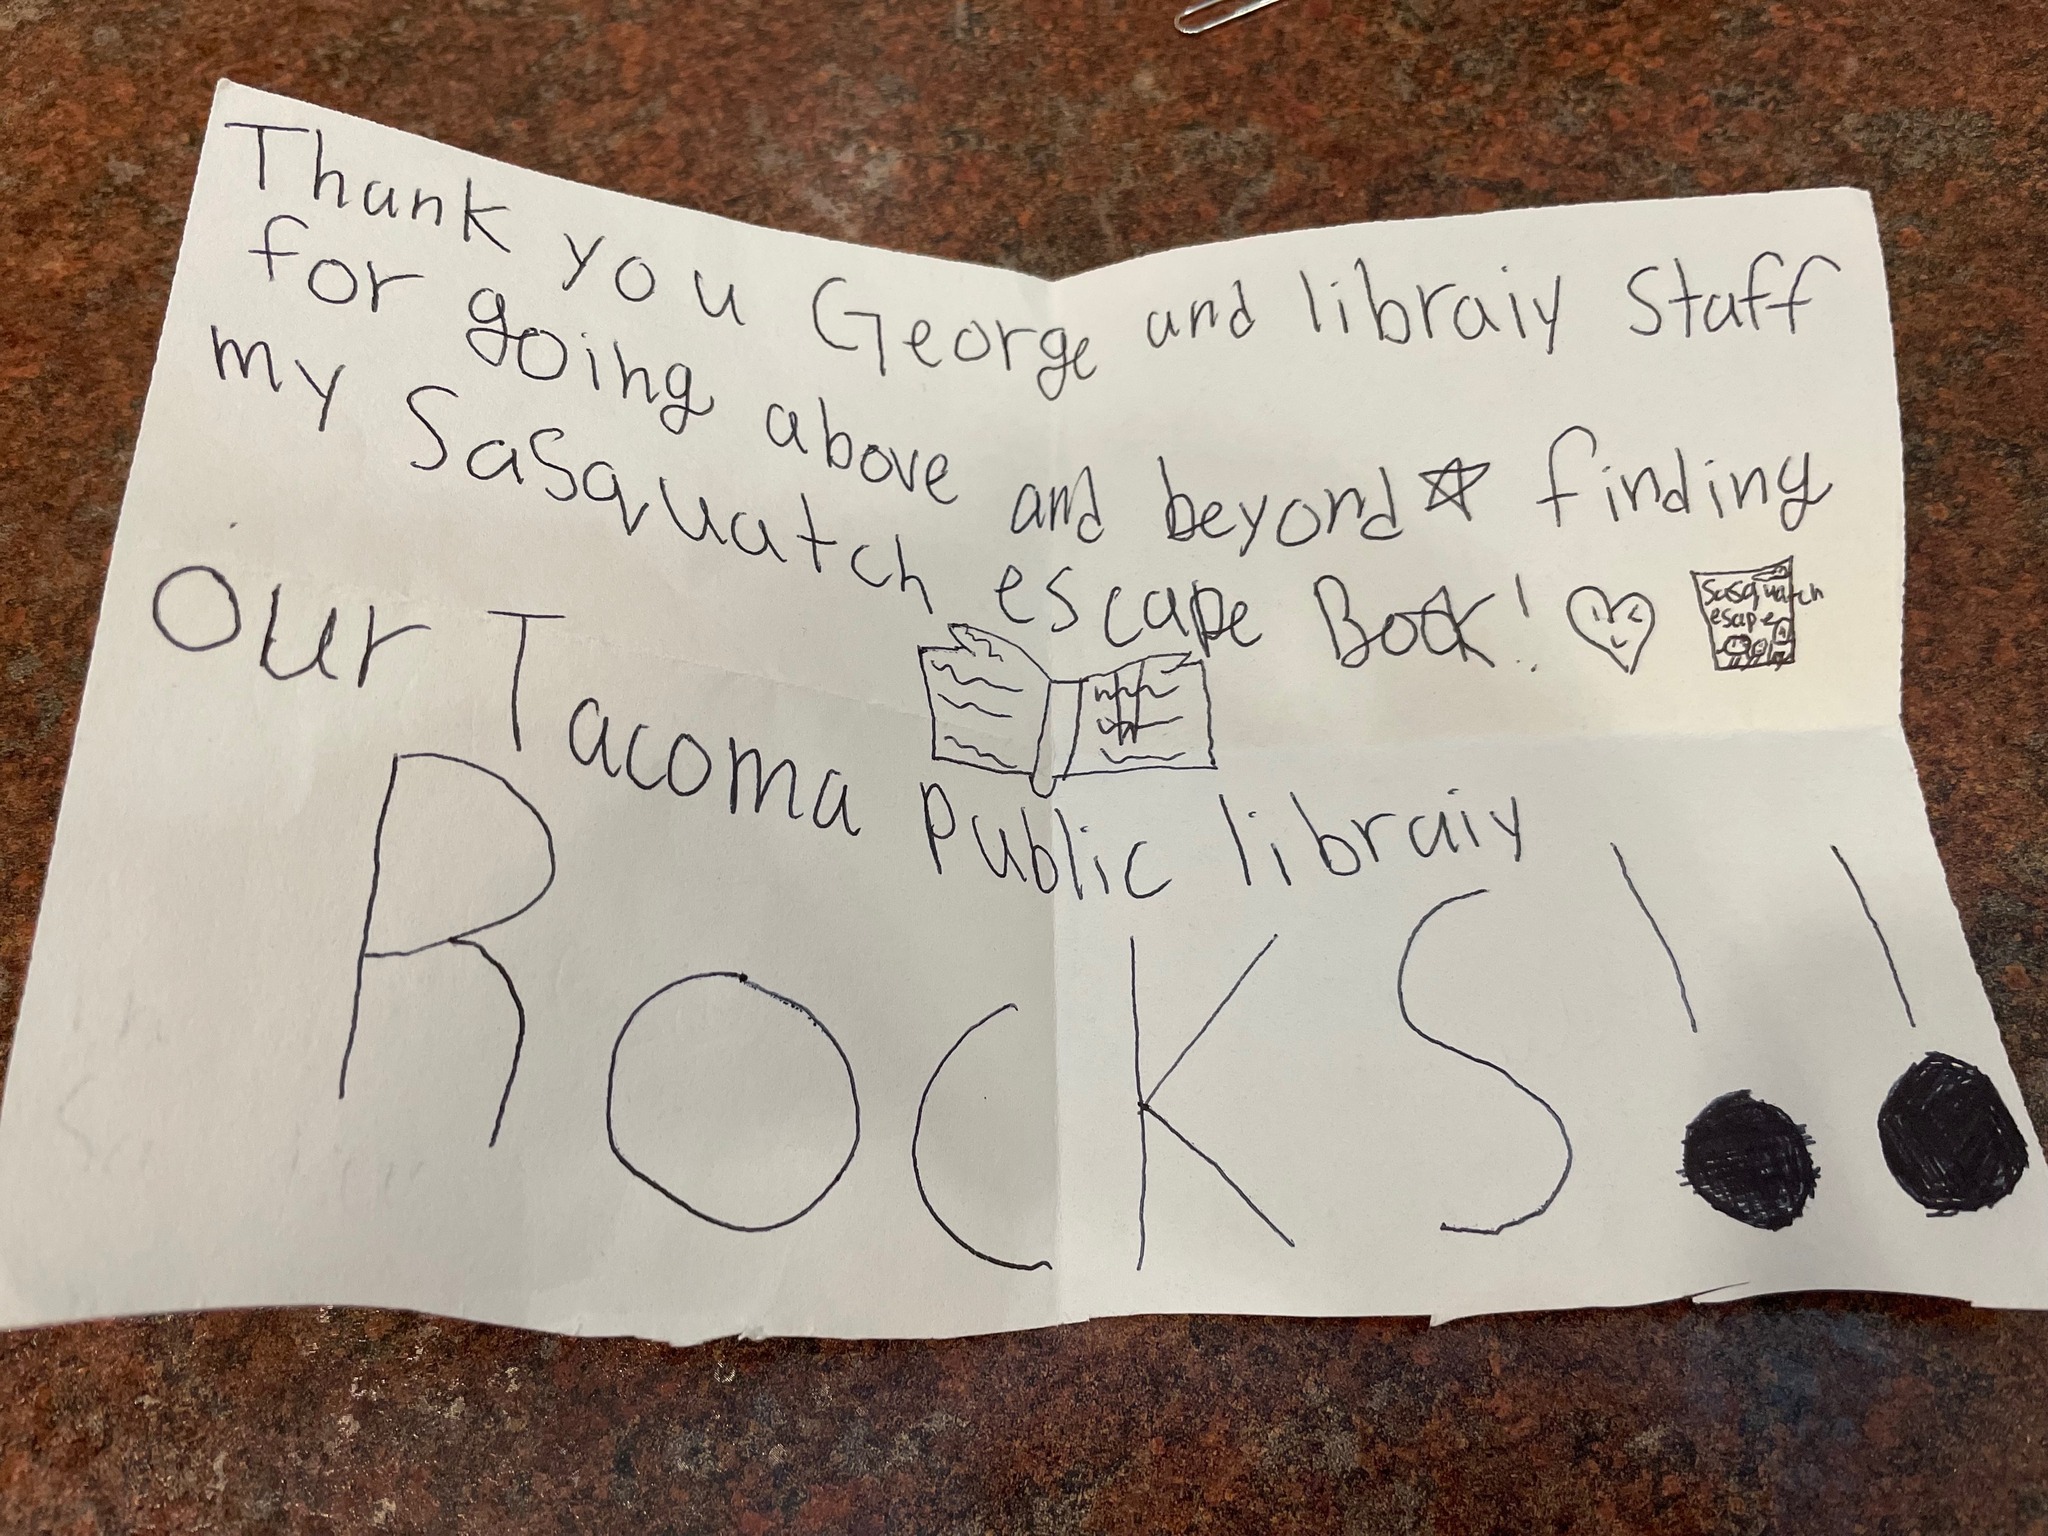 Thank you George and libraiy Staff
for going above and beyond finding
my Sasquatch escape Book!
Sasquatch
escape
Our Tacoma Public libraiy
ROCKS!!